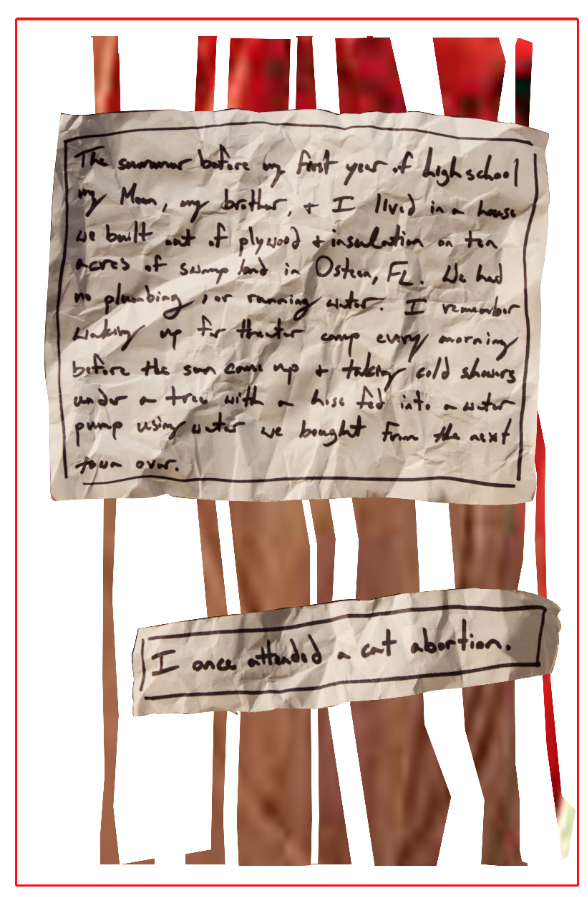 The summer before my first year of high school
my Mom, my brother, + I lived in a house
we built out of plywood + insulation on ten
acres of swamp land in Osteen, FL. We had
no plumbing, or running water. I remember
waking up for theater camp every morning
before the sun came up + taking cold showers
under a tree with a hose fed into a water
pump using water we bought from the next
town over.
I once attended a cat abortion.